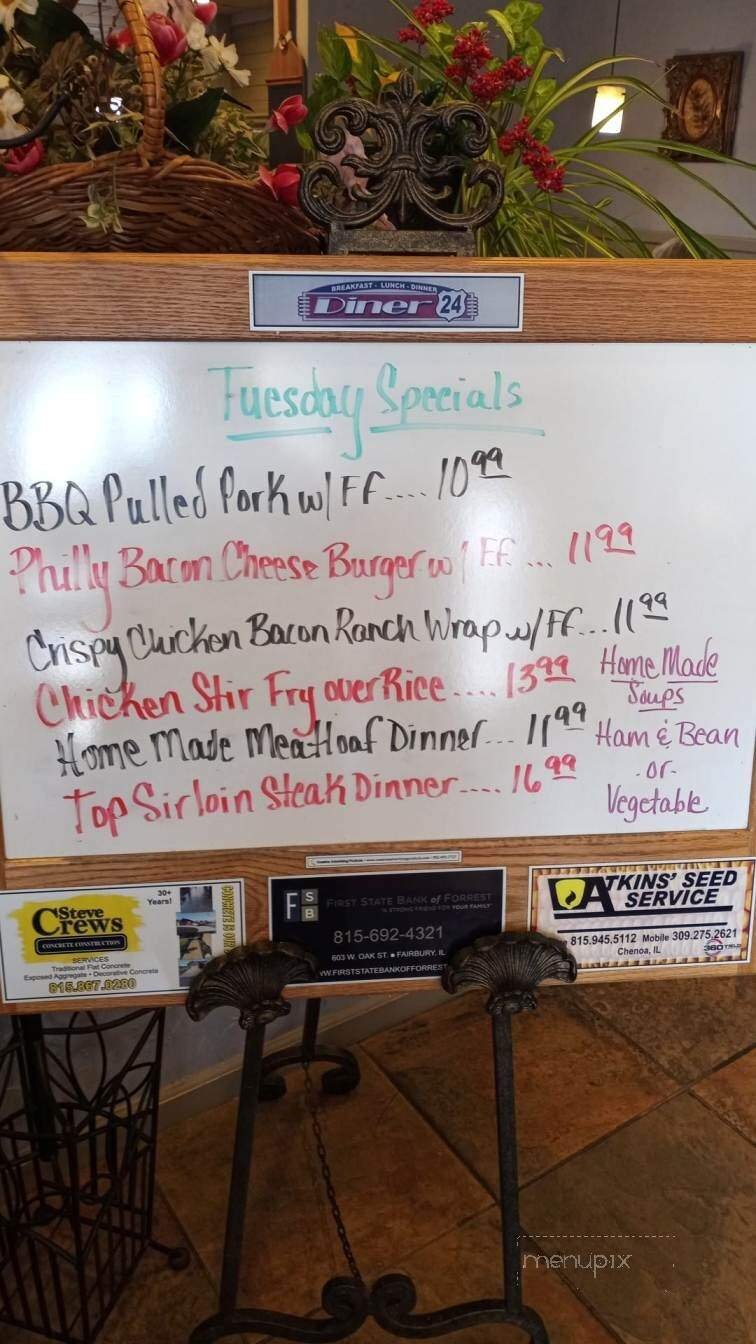 BREAKFAST - LUNCH - DINNER
Diner 24
Tuesday Specials
BBQ Pulled Pork w/ FF.... 10 99
Philly Bacon Cheese Burger w/ FF ... 11 99
Crispy Chicken Bacon Ranch Wrap w/ FF... 11 99
Chicken Stir Fry over Rice .... 13 99
Home Made Meatloaf Dinner... 11 99
Top Sirloin Steak Dinner.... 16 99
Home Made
Soups
Ham & Bean
-or-
Vegetable
Steve
Crews
CONCRETE CONSTRUCTION
30+
Years!
SERVICES
Traditional Flat Concrete
Exposed Aggregate • Decorative Concrete
815.867.0280
FSB
FIRST STATE BANK of FORREST
A STRONG FRIEND FOR YOUR FAMILY
815-692-4321
603 W. OAK ST. ● FAIRBURY, IL
WWW.FIRSTSTATEBANKOFFORREST
ATKINS' SEED
SERVICE
815.945.5112 Mobile 309.275.2621
Chenoa, IL
menupix